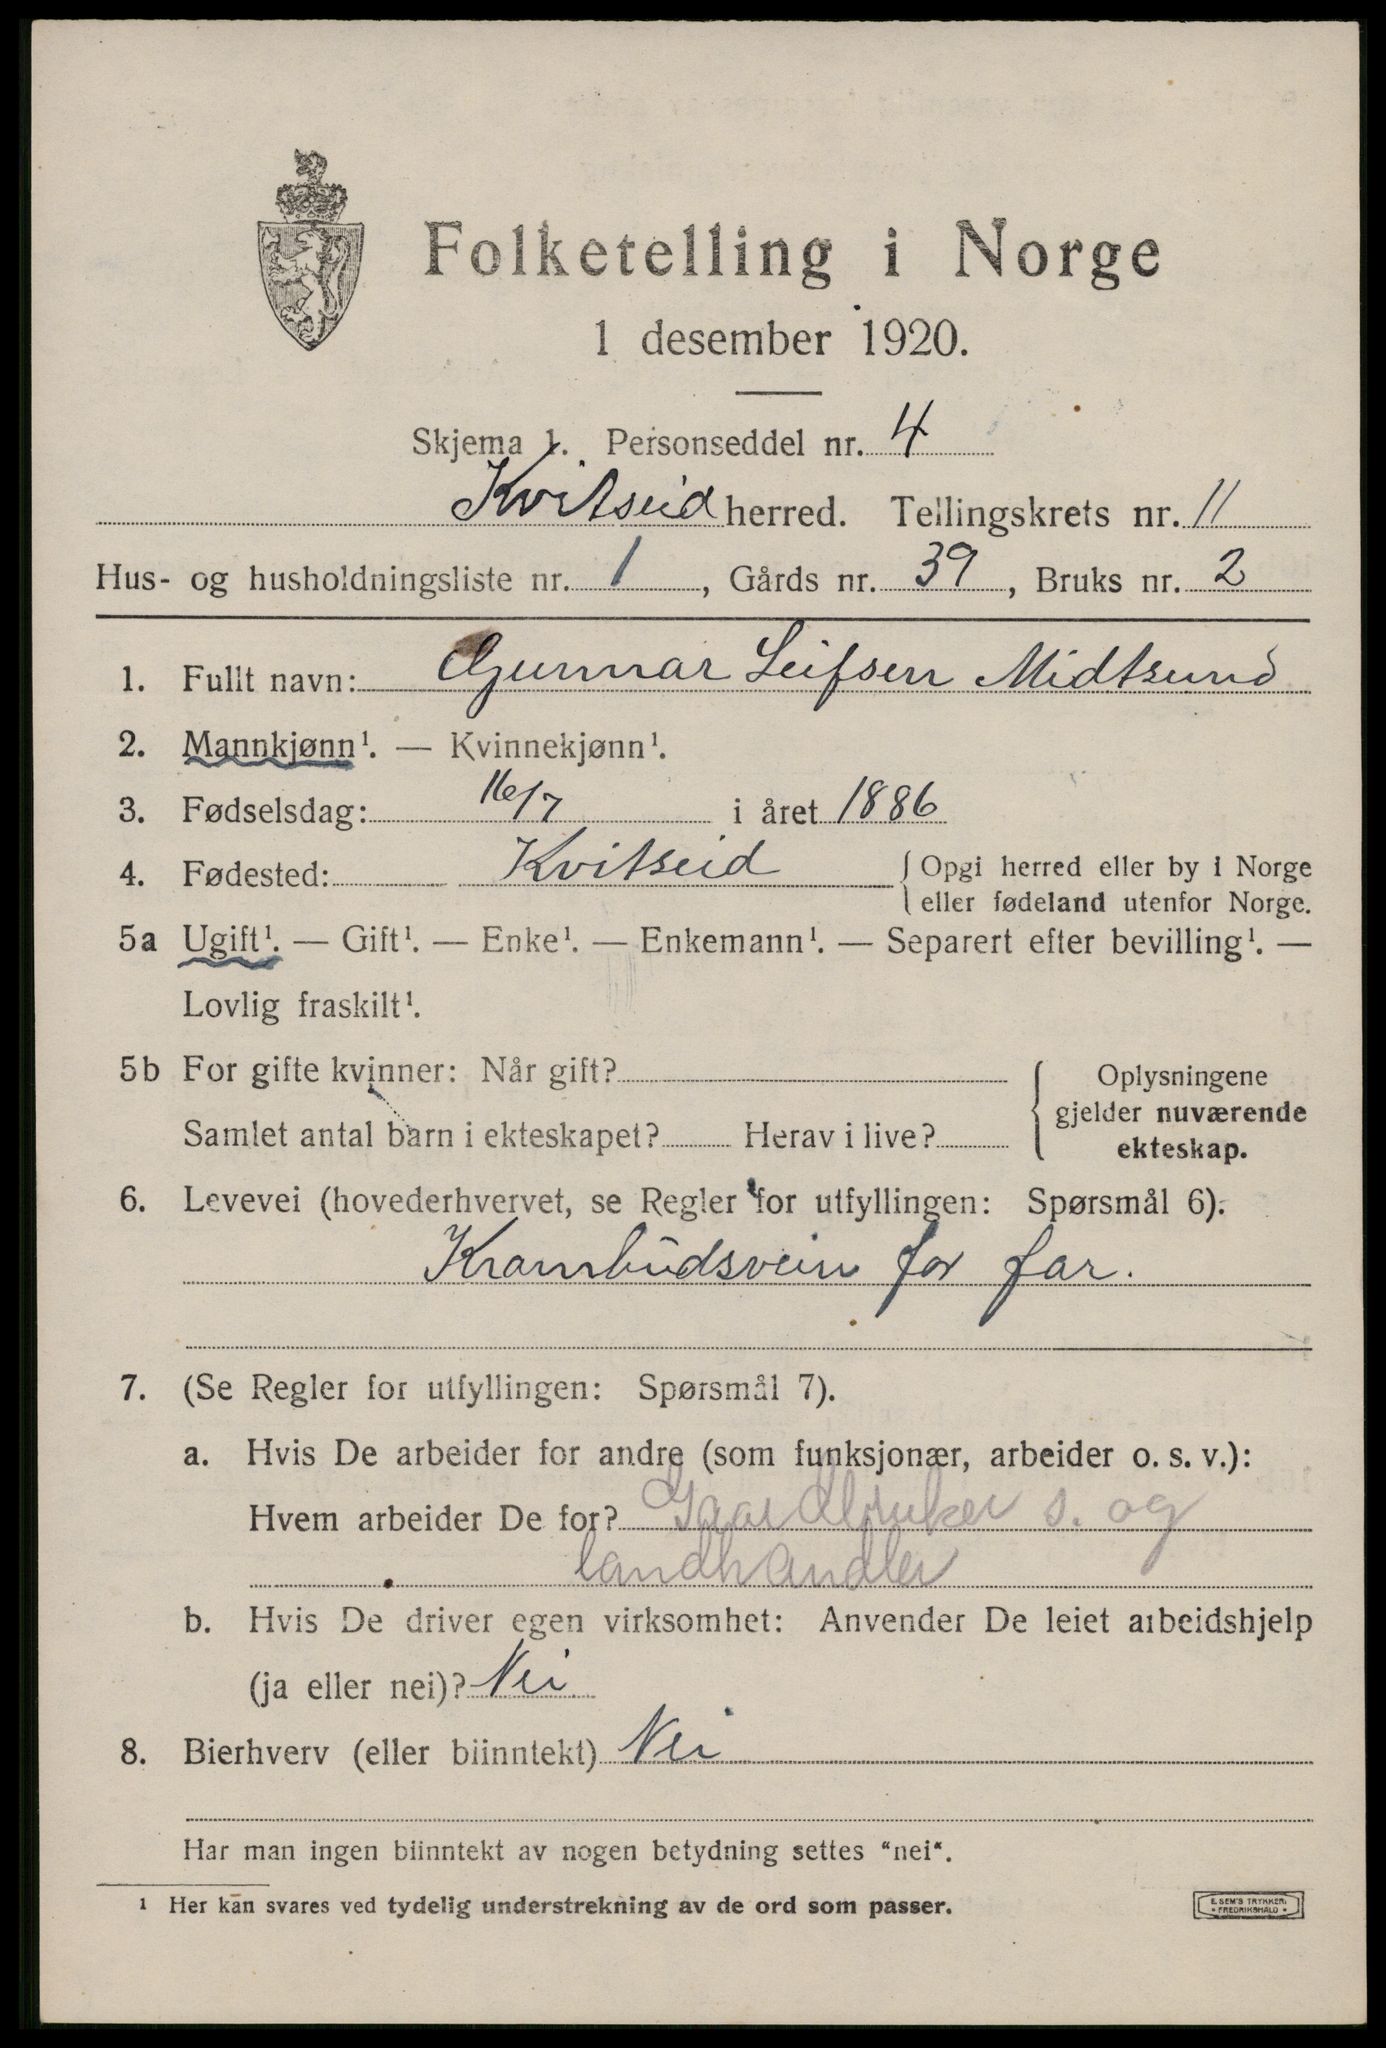 Folketelling i Norge
1 desember 1920.
Skjema 1. Personseddel nr. 4
Kvitseid herred. Tellingskrets nr. 11
Hus- og husholdningsliste nr. 1, Gårds nr. 39, Bruks nr. 2
1. Fullt navn: Gunnar Leifsen Midtsund
2. Mannkjønn¹. — Kvinnekjønn¹.
3. Fødselsdag: 16/7 i året 1886
4. Fødested: Kvitseid { Opgi herred eller by i Norge
eller fødeland utenfor Norge.
5a Ugift¹. — Gift¹. — Enke¹. — Enkemann¹. — Separert efter bevilling¹. —
Lovlig fraskilt¹.
5b For gifte kvinner: Når gift?
Samlet antal barn i ekteskapet? Herav i live?
Oplysningene
gjelder nuværende
ekteskap.
6. Levevei (hovederhvervet, se Regler for utfyllingen: Spørsmål 6).
Krambudsvein for far.
7. (Se Regler for utfyllingen: Spørsmål 7).
a. Hvis De arbeider for andre (som funksjonær, arbeider o. s. v.):
Hvem arbeider De for? Gaardbruker s. og
landhandler
b. Hvis De driver egen virksomhet: Anvender De leiet arbeidshjelp
(ja eller nei)? Nei
8. Bierhverv (eller biinntekt) Nei
Har man ingen biinntekt av nogen betydning settes "nei".
¹ Her kan svares ved tydelig understrekning av de ord som passer.
E. SEM'S TRYKKERI
* FREDRIKSHALD *